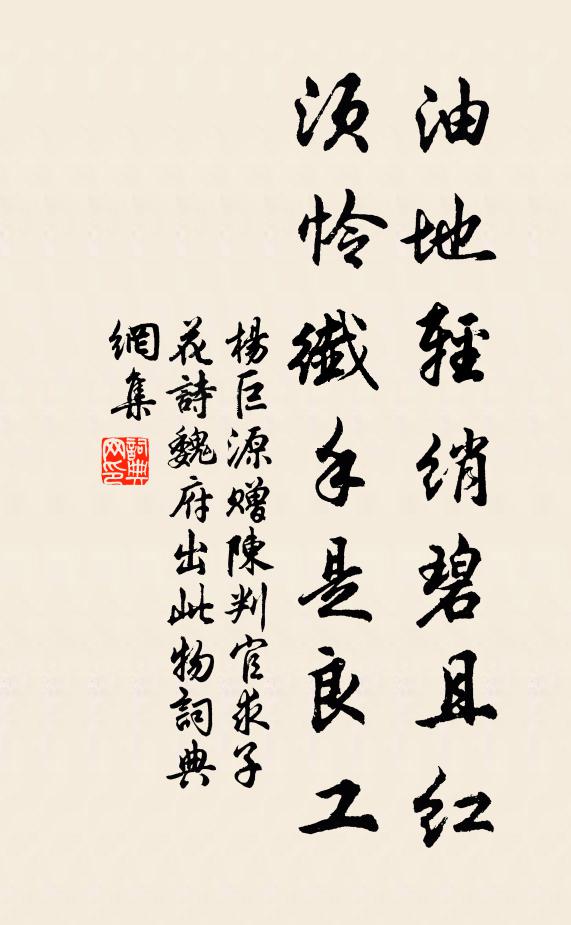 油地輕綃碧且紅
須憐纖手是良工
楊巨源贈陳判官求子
花詩魏府出此物詞典
網集
詞典网印